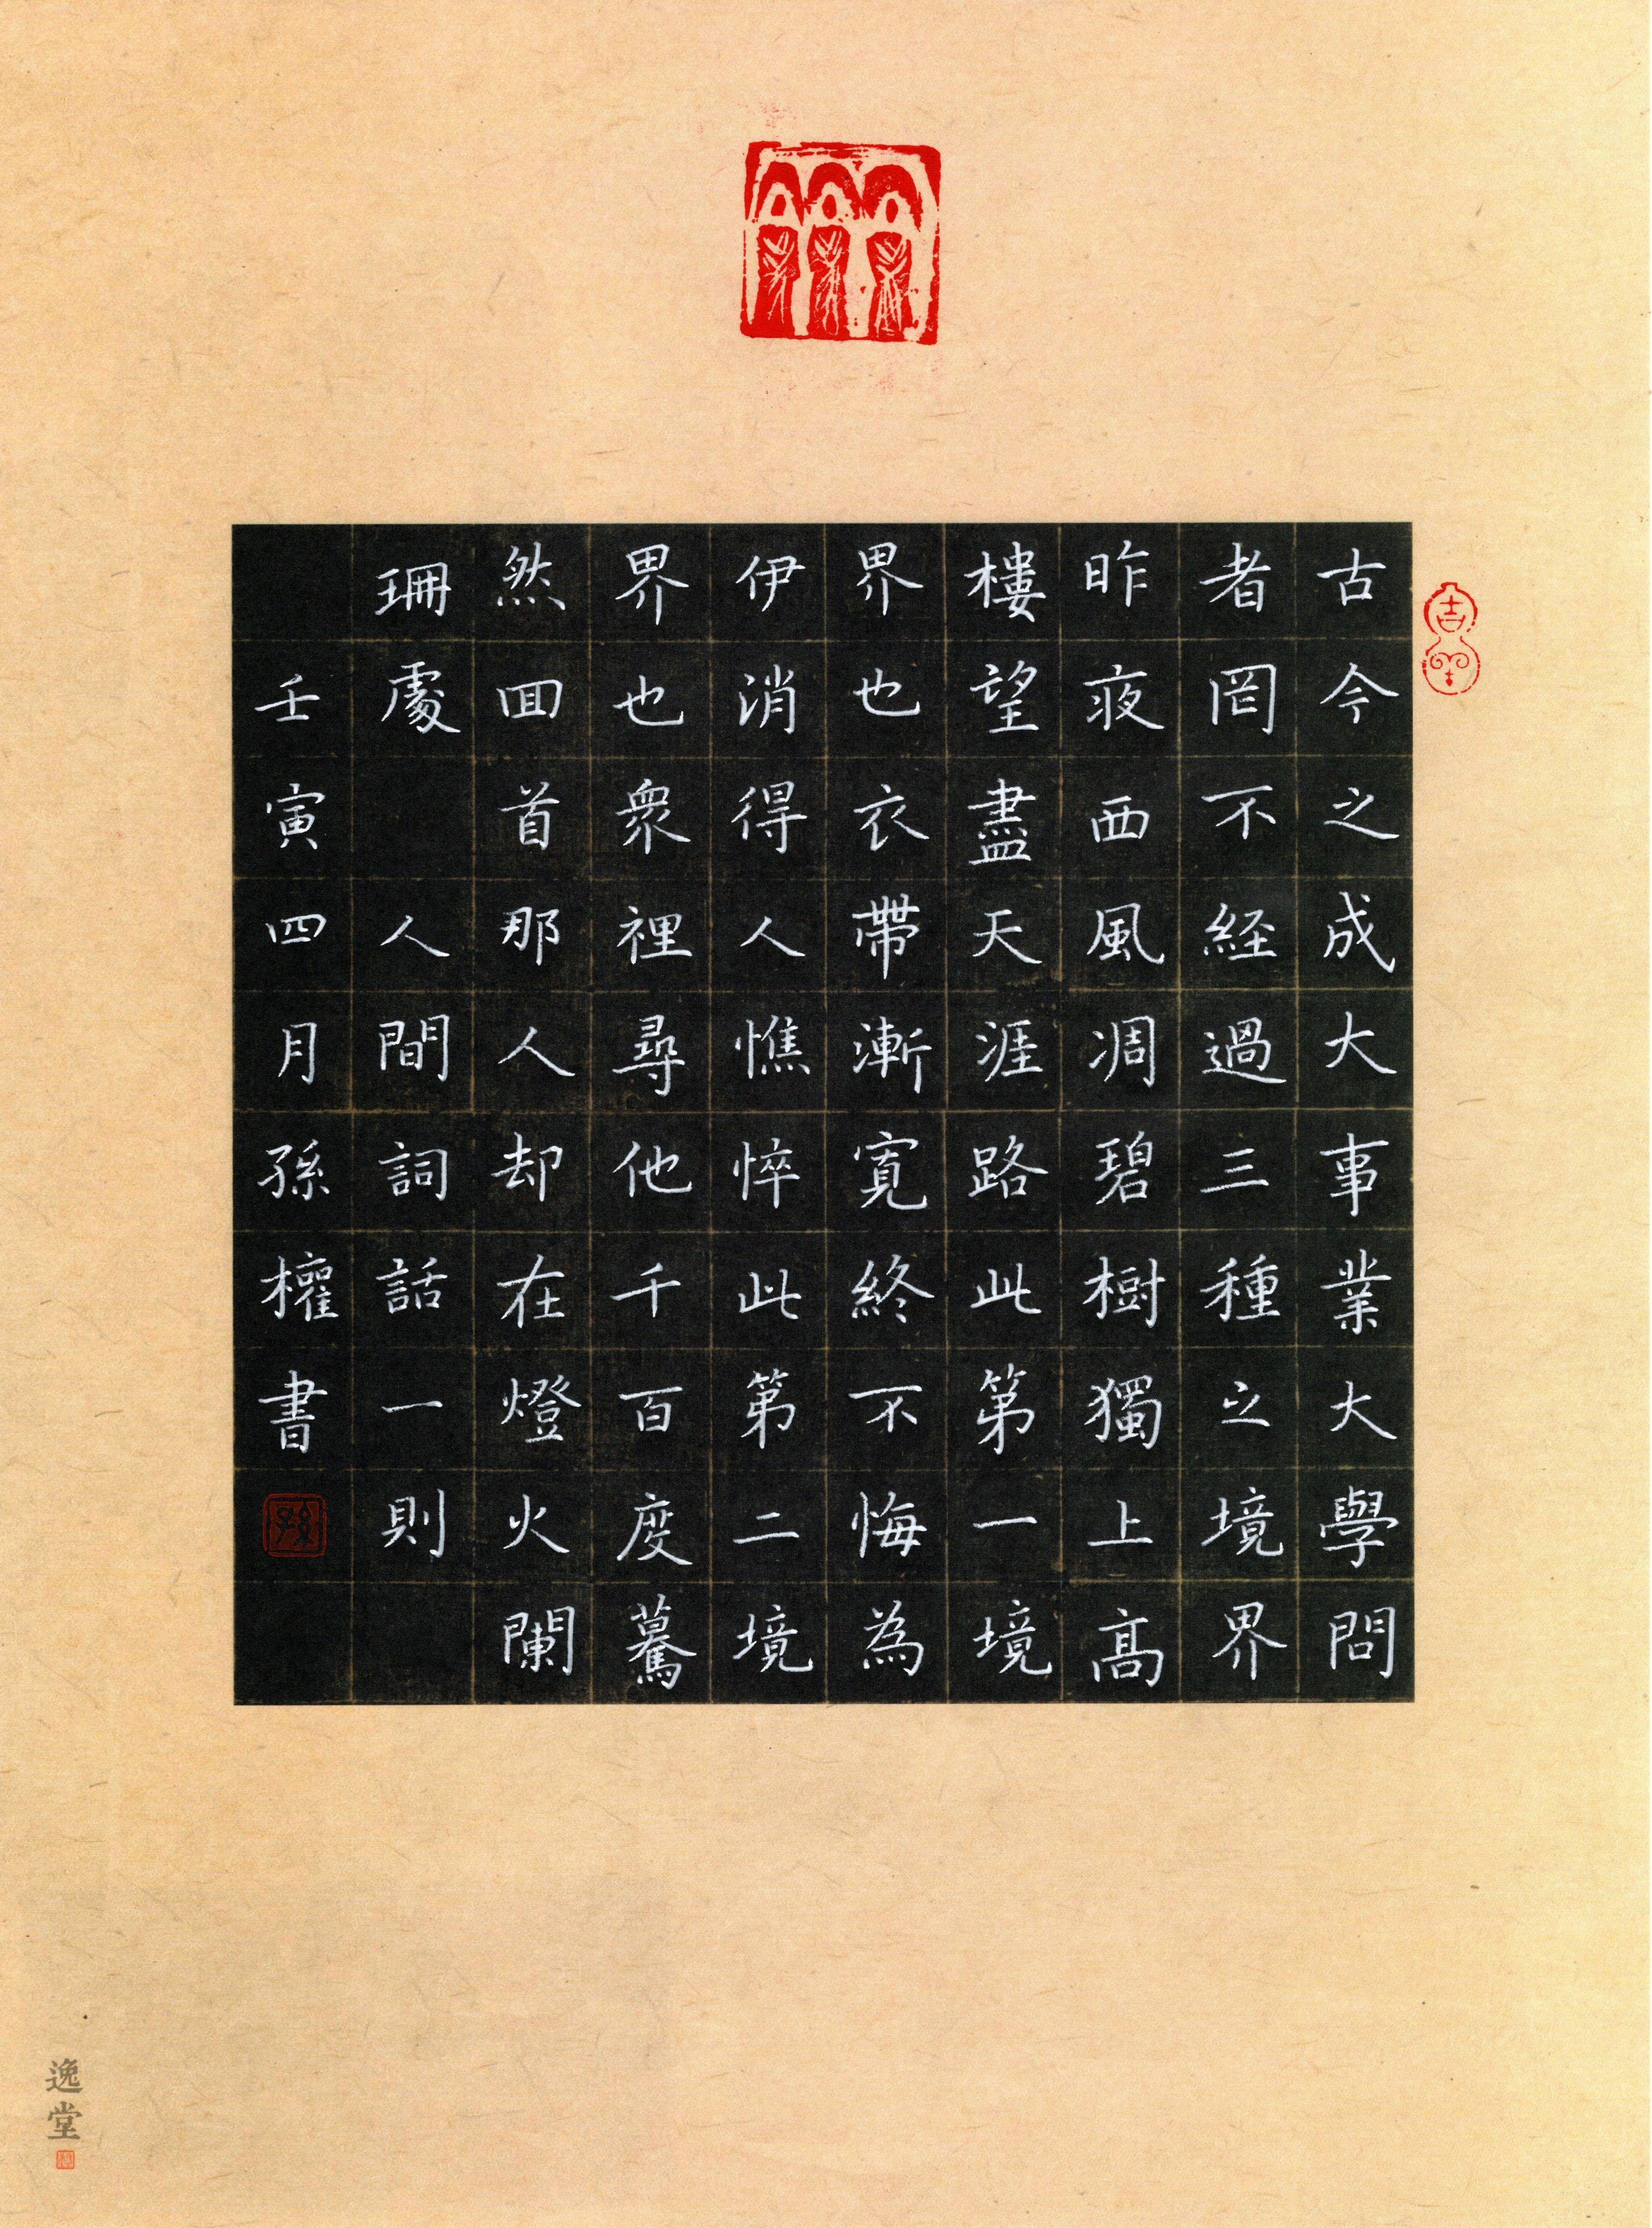 古今之成大事業大學問
者罔不経過三種之境界
昨夜西風凋碧樹獨上髙
樓望盡天涯路此第一境
界也衣帶漸寬終不悔為
伊消得人憔悴此第二境
界也衆裡尋他千百度驀
然回首那人却在燈火闌
珊處 人間詞話一則
壬寅四月孫權書
逸堂